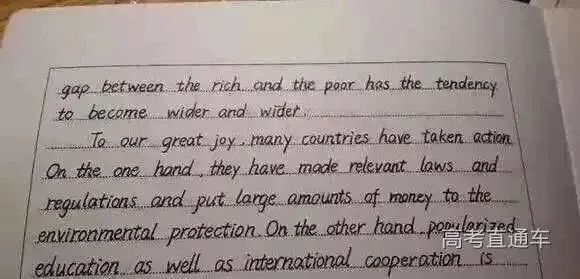 gap between the rich and the poor has the tendency
to become wider and wider.
To our great joy, many countries have taken action
On the one hand, they have made relevant laws and
regulations and put large amounts of money to the
environmental protection. On the other hand, popularized
education as well as international cooperation is
高考直通车